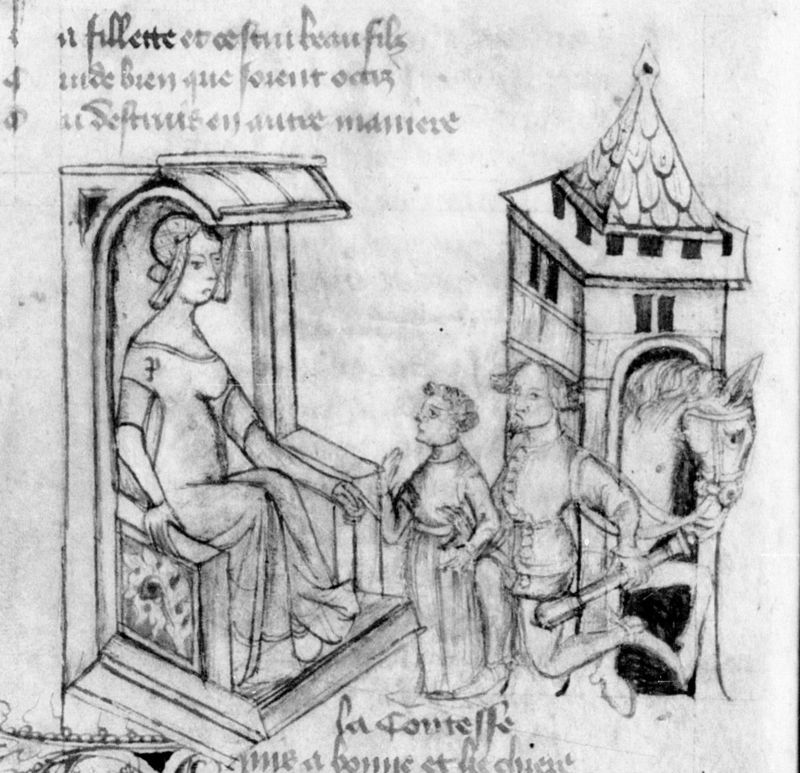 la fillette et cestui beau filz
cuide bien que soient occiz
ou destruis en autre maniere
p
la Contesse
qui a bonne et lie chiere